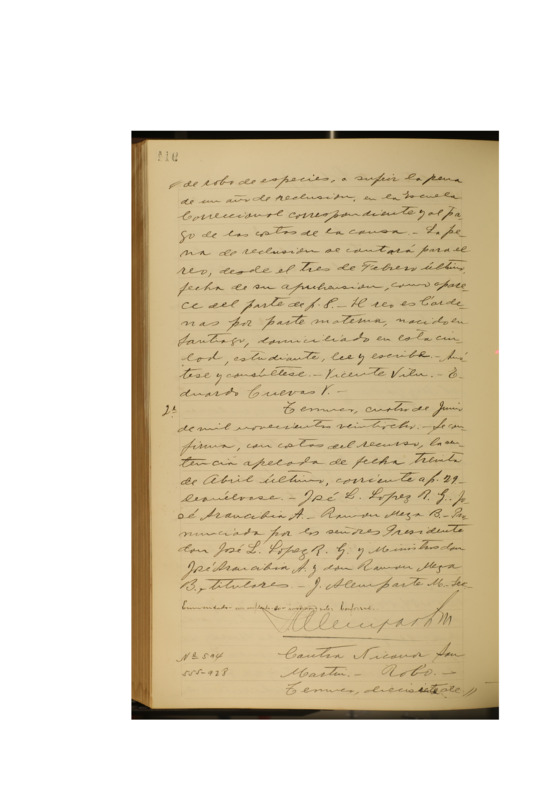 110
de robo de especies, a sufrir la pena
de un año de reclusión, en la Escuela
Correccional correspondiente y al pa-
go de las costas de la causa.- La pe-
na de reclusion se contará para el
reo, desde el tres de Febrero último,
fecha de su aprehension, como apare-
ce del parte de f. 8.- El reo es Carde-
nas por parte materna, nacido en
Santiago, domiciliado en esta ciu-
dad, estudiante, lee y escribe.- Anó-
tese y consúltese.- Vicente Vila.- E-
duardo Cuevas V.-
2ª
Temuco, cuatro de Junio
de mil novecientos veintiocho.- Se con-
firma, con costas del recurso, la sen-
tencia apelada de fecha treinta
de Abril último, corriente a f. 29.-
Devuélvase.- José L. López R. G. Jo-
sé Aravebia A.- Ramon Meza B.- Pro-
nunciada por los señores Presidente
don José L. López R. G. y Ministros don
José y don Ramon Meza
B., titulares.- J. Alemparte M. Sec
Alemparte M
Nº 594
Contra Nicanor San
555-928
Martin.- Robo.-
Temuco, diecisiete de